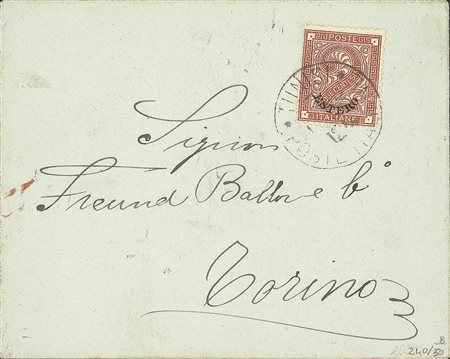 POSTE
ESTERO
ITALIANE
POSTE ITA
Signori
Freund Ballor e Cº
Torino
240/30